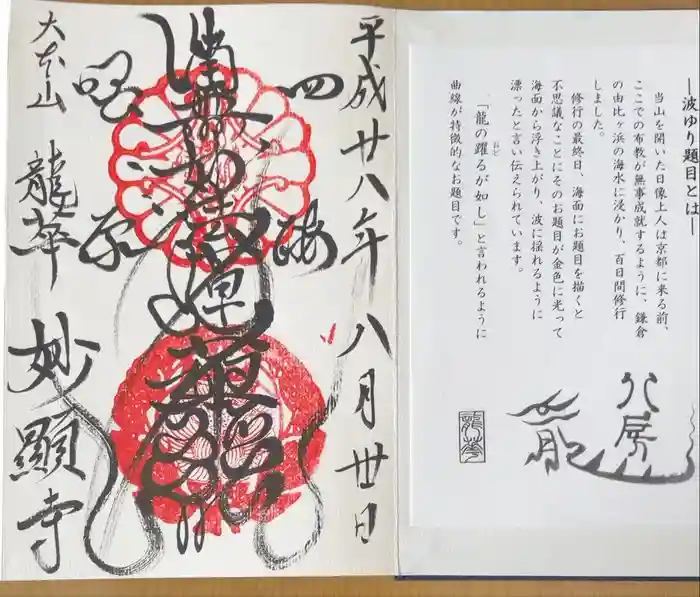 ―波ゆり題目とは―
当山を開いた日像上人は京都に来る前、
ここでの布教が無事成就するように、鎌倉
の由比ヶ浜の海水に浸かり、百日間修行
しました。
修行の最終日、海面にお題目を描くと
不思議なことにそのお題目が金色に光って
海面から浮き上がり、波に揺れるように
漂ったと言い伝えられています。
「龍の躍るが如し」と言われるように
曲線が特徴的なお題目です。
龍華
平成廿八年八月丗日
四海
南無妙法蓮華経
大本山 龍華 妙顯寺